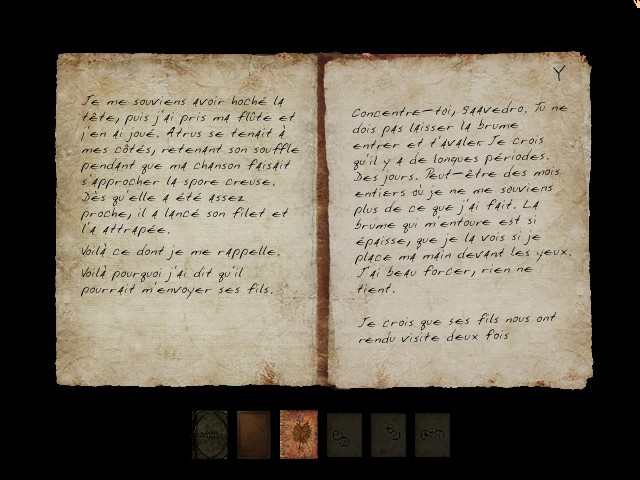 Je me souviens avoir hoché la
tête, puis j'ai pris ma flûte et
j'en ai joué. Atrus se tenait à
mes côtés, retenant son souffle
pendant que ma chanson faisait
s'approcher la spore creuse.
Dès qu'elle a été assez
proche, il a lancé son filet et
l'a attrapée.
Voilà ce dont je me rappelle.
Voilà pourquoi j'ai dit qu'il
pourrait m'envoyer ses fils.
Y
Concentre-toi, Saavedro. Tu ne
dois pas laisser la brume
entrer et t'avaler. Je crois
qu'il y a de longues périodes.
Des jours. Peut-être des mois
entiers où je ne me souviens
plus de ce que j'ai fait. La
brume qui m'entoure est si
épaisse, que je la vois si je
place ma main devant les yeux.
J'ai beau forcer, rien ne
tient.
Je crois que ses fils nous ont
rendu visite deux fois